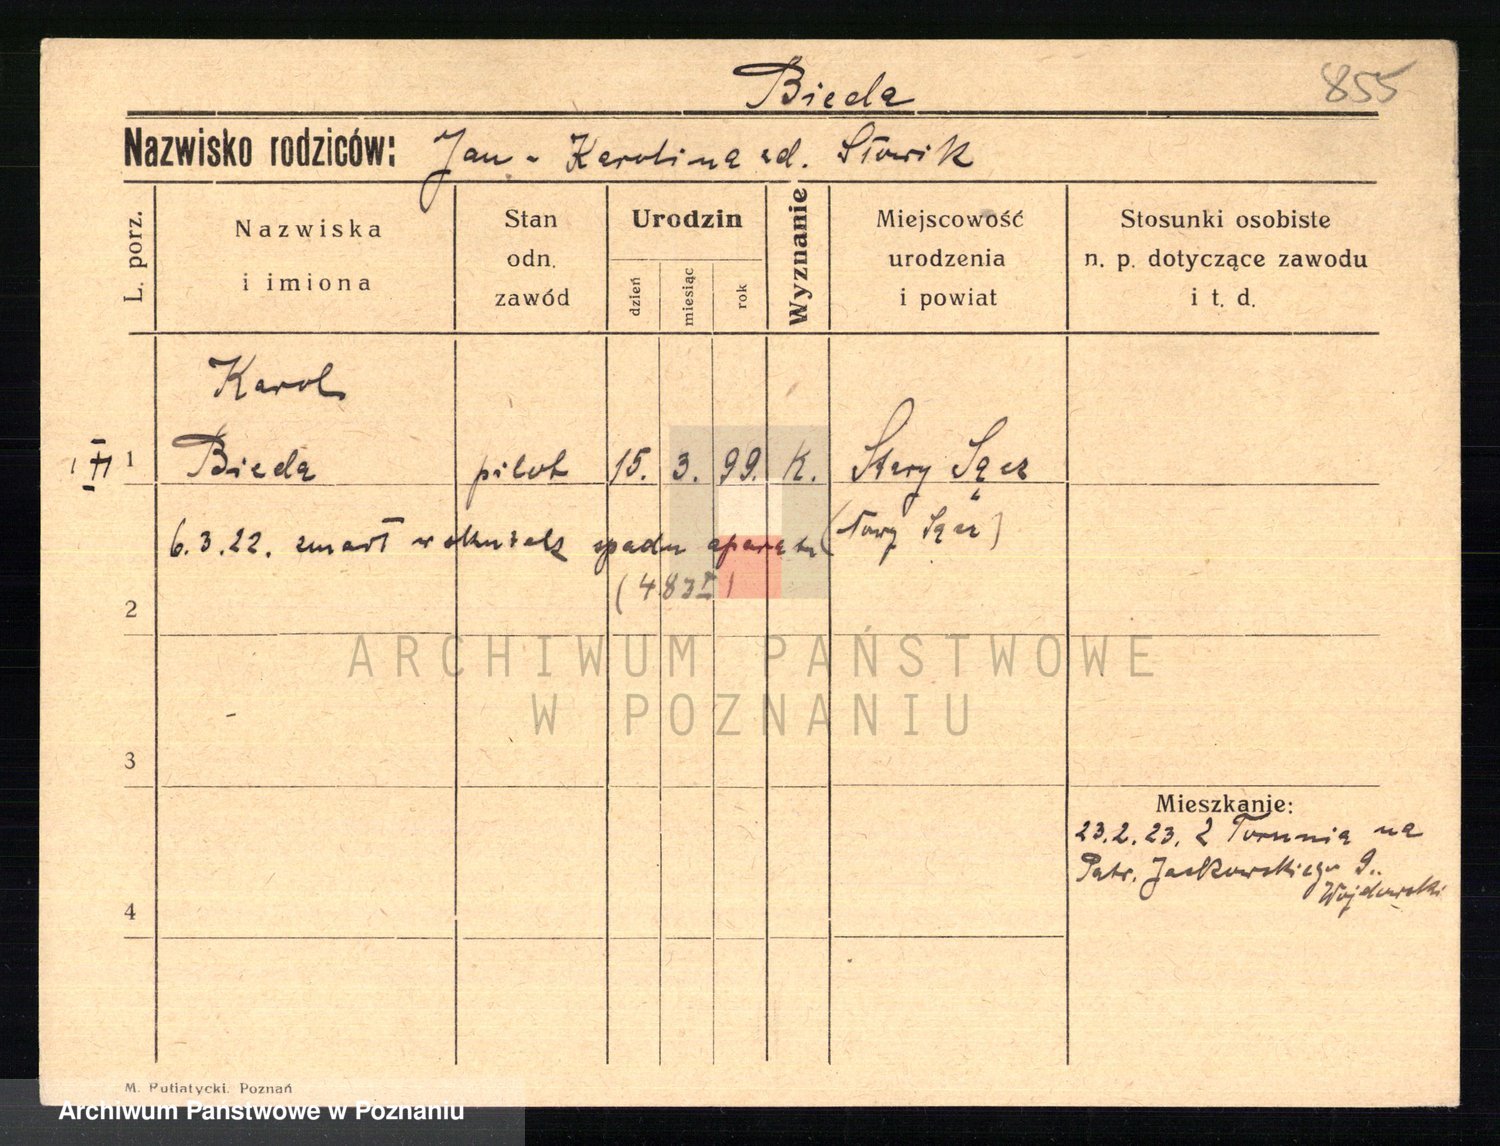 Bieda
855
Nazwisko rodziców: Jan - Karolina zd. Słowik
L. porz.
Nazwiska
i imiona
Stan
odn.
zawód
Urodzin
dzień
miesiąc
rok
Wyznanie
Miejscowość
urodzenia
i powiat
Stosunki osobiste
n. p. dotyczące zawodu
i t. d.
Karol
1 Bieda pilot 15. 3. 99. K. Stary Sącz
(Nowy Sącz)
6.3.22. zmarł wskutek spadu aparatu
(483 I)
2
ARCHIWUM PAŃSTWOWE
W POZNANIU
3
Mieszkanie:
23.2.23. Z Torunia na
Patr. Jackowskiego 9.
Wojdowski
4
M. Putiatycki. Poznań
Archiwum Państwowe w Poznaniu